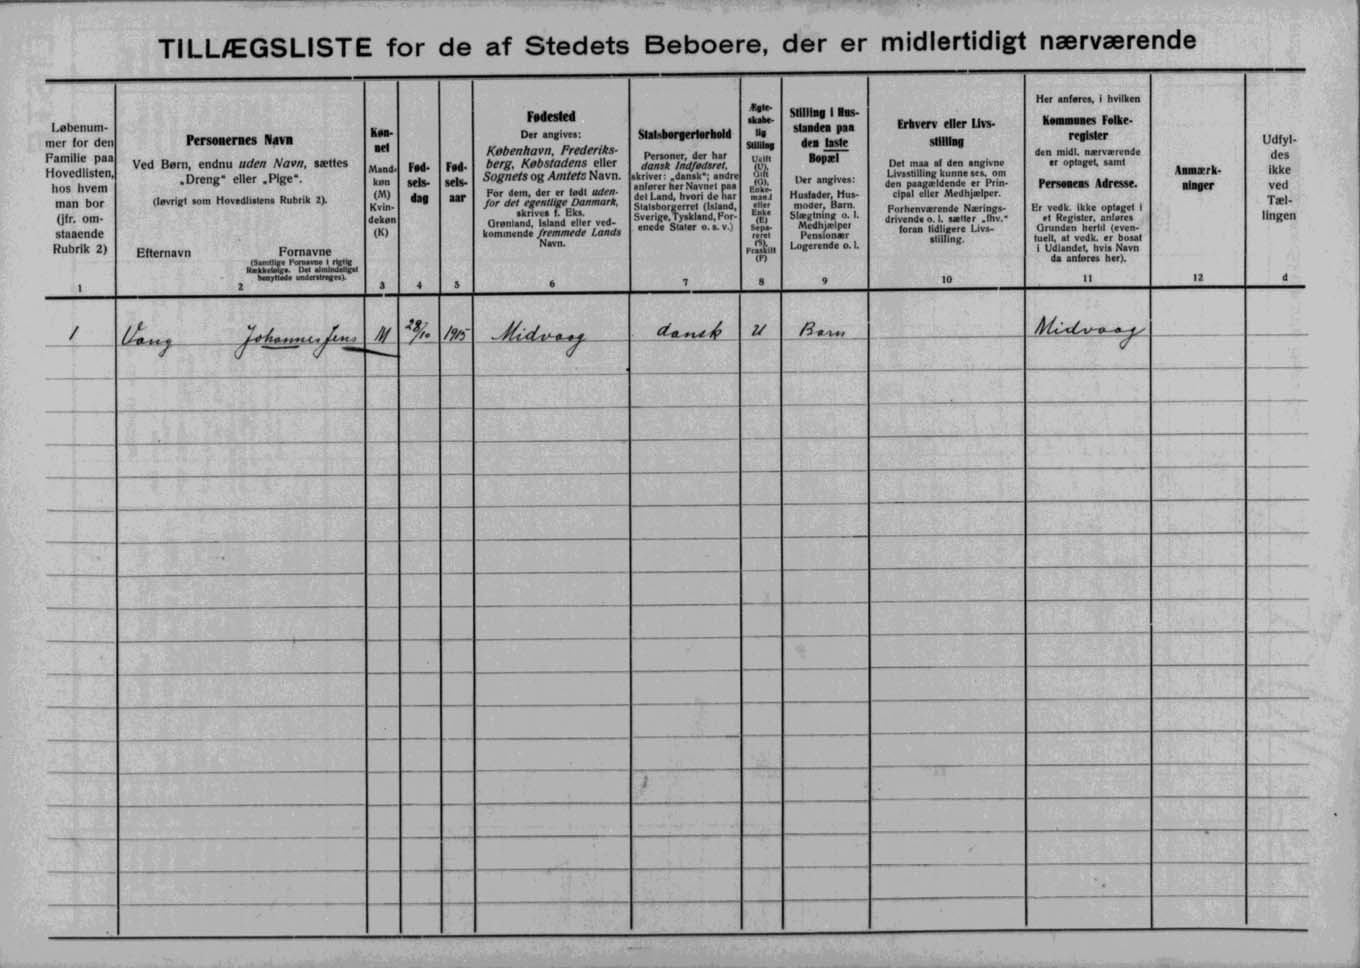 TILLÆGSLISTE for de af Stedets Beboere, der er midlertidigt nærværende
Løbenum-
mer for den
Familie paa
Hovedlisten,
hos hvem
man bor
(jfr. om-
staaende
Rubrik 2)
1
Personernes Navn
Ved Børn, endnu uden Navn, sættes
„Dreng“ eller „Pige“.
(Iøvrigt som Hovedlistens Rubrik 2).
Efternavn
Fornavne
(Samtlige Fornavne i rigtig
Rækkefølge. Det almindeligst
benyttede understreges).
2
Køn-
net
Mand-
køn
(M)
Kvin-
dekøn
(K)
3
Fød-
sels-
dag
4
Fød-
sels-
aar
5
Fødested
Der angives:
København, Frederiks-
berg, Købstadens eller
Sognets og Amtets Navn.
For dem, der er født uden-
for det egentlige Danmark,
skrives f. Eks.
Grønland, Island eller ved-
kommende fremmede Lands
Navn.
6
Statsborgerforhold
Personer, der har
dansk Indfødsret,
skriver: „dansk“; andre
anfører her Navnet paa
det Land, hvori de har
Statsborgerret (Island,
Sverige, Tyskland, For-
enede Stater o. s. v.)
7
Ægte-
skabe-
lig
Stilling
Ugift
(U),
Gift
(G),
Enke-
mand
eller
Enke
(E)
Sepa-
reret
(S),
Fraskilt
(F)
8
Stilling i Hus-
standen paa
den faste
Bopæl
Der angives:
Husfader, Hus-
moder, Barn,
Slægtning o. l.
Medhjælper
Pensionær
Logerende o. l.
9
Erhverv eller Livs-
stilling
Det maa af den angivne
Livsstilling kunne ses, om
den paagældende er Prin-
cipal eller Medhjælper.
Forhenværende Nærings-
drivende o. l. sætter „fhv.“
foran tidligere Livs-
stilling.
10
Her anføres, i hvilken
Kommunes Folke-
register
den midl. nærværende
er optaget, samt
Personens Adresse.
Er vedk. ikke optaget i
et Register, anføres
Grunden hertil (even-
tuelt, at vedk. er bosat
i Udlandet, hvis Navn
da anføres her).
11
Anmærk-
ninger
12
Udfyl-
des
ikke
ved
Tæl-
lingen
d
1 Vang Johannes Jens M 28/10 1915 Midvaag dansk U Barn Midvaag